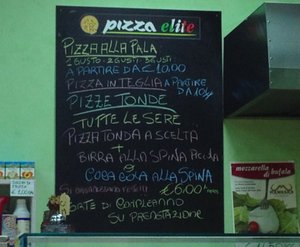 pizza elite
PIZZA ALLA PALA
1 GUSTO - 2 GUSTI - 3 GUSTI
A PARTIRE DA € 10,00
PIZZA IN TEGLIA A PARTIRE
DA 10
PIZZE TONDE
TUTTE LE SERE
PIZZA TONDA A SCELTA
+
BIRRA ALLA SPINA PICCOLA
O
COCA COLA ALLA SPINA
€ 6.00
TORTE DI COMPLEANNO
SU PRENOTAZIONE
mozzarella
di bufala